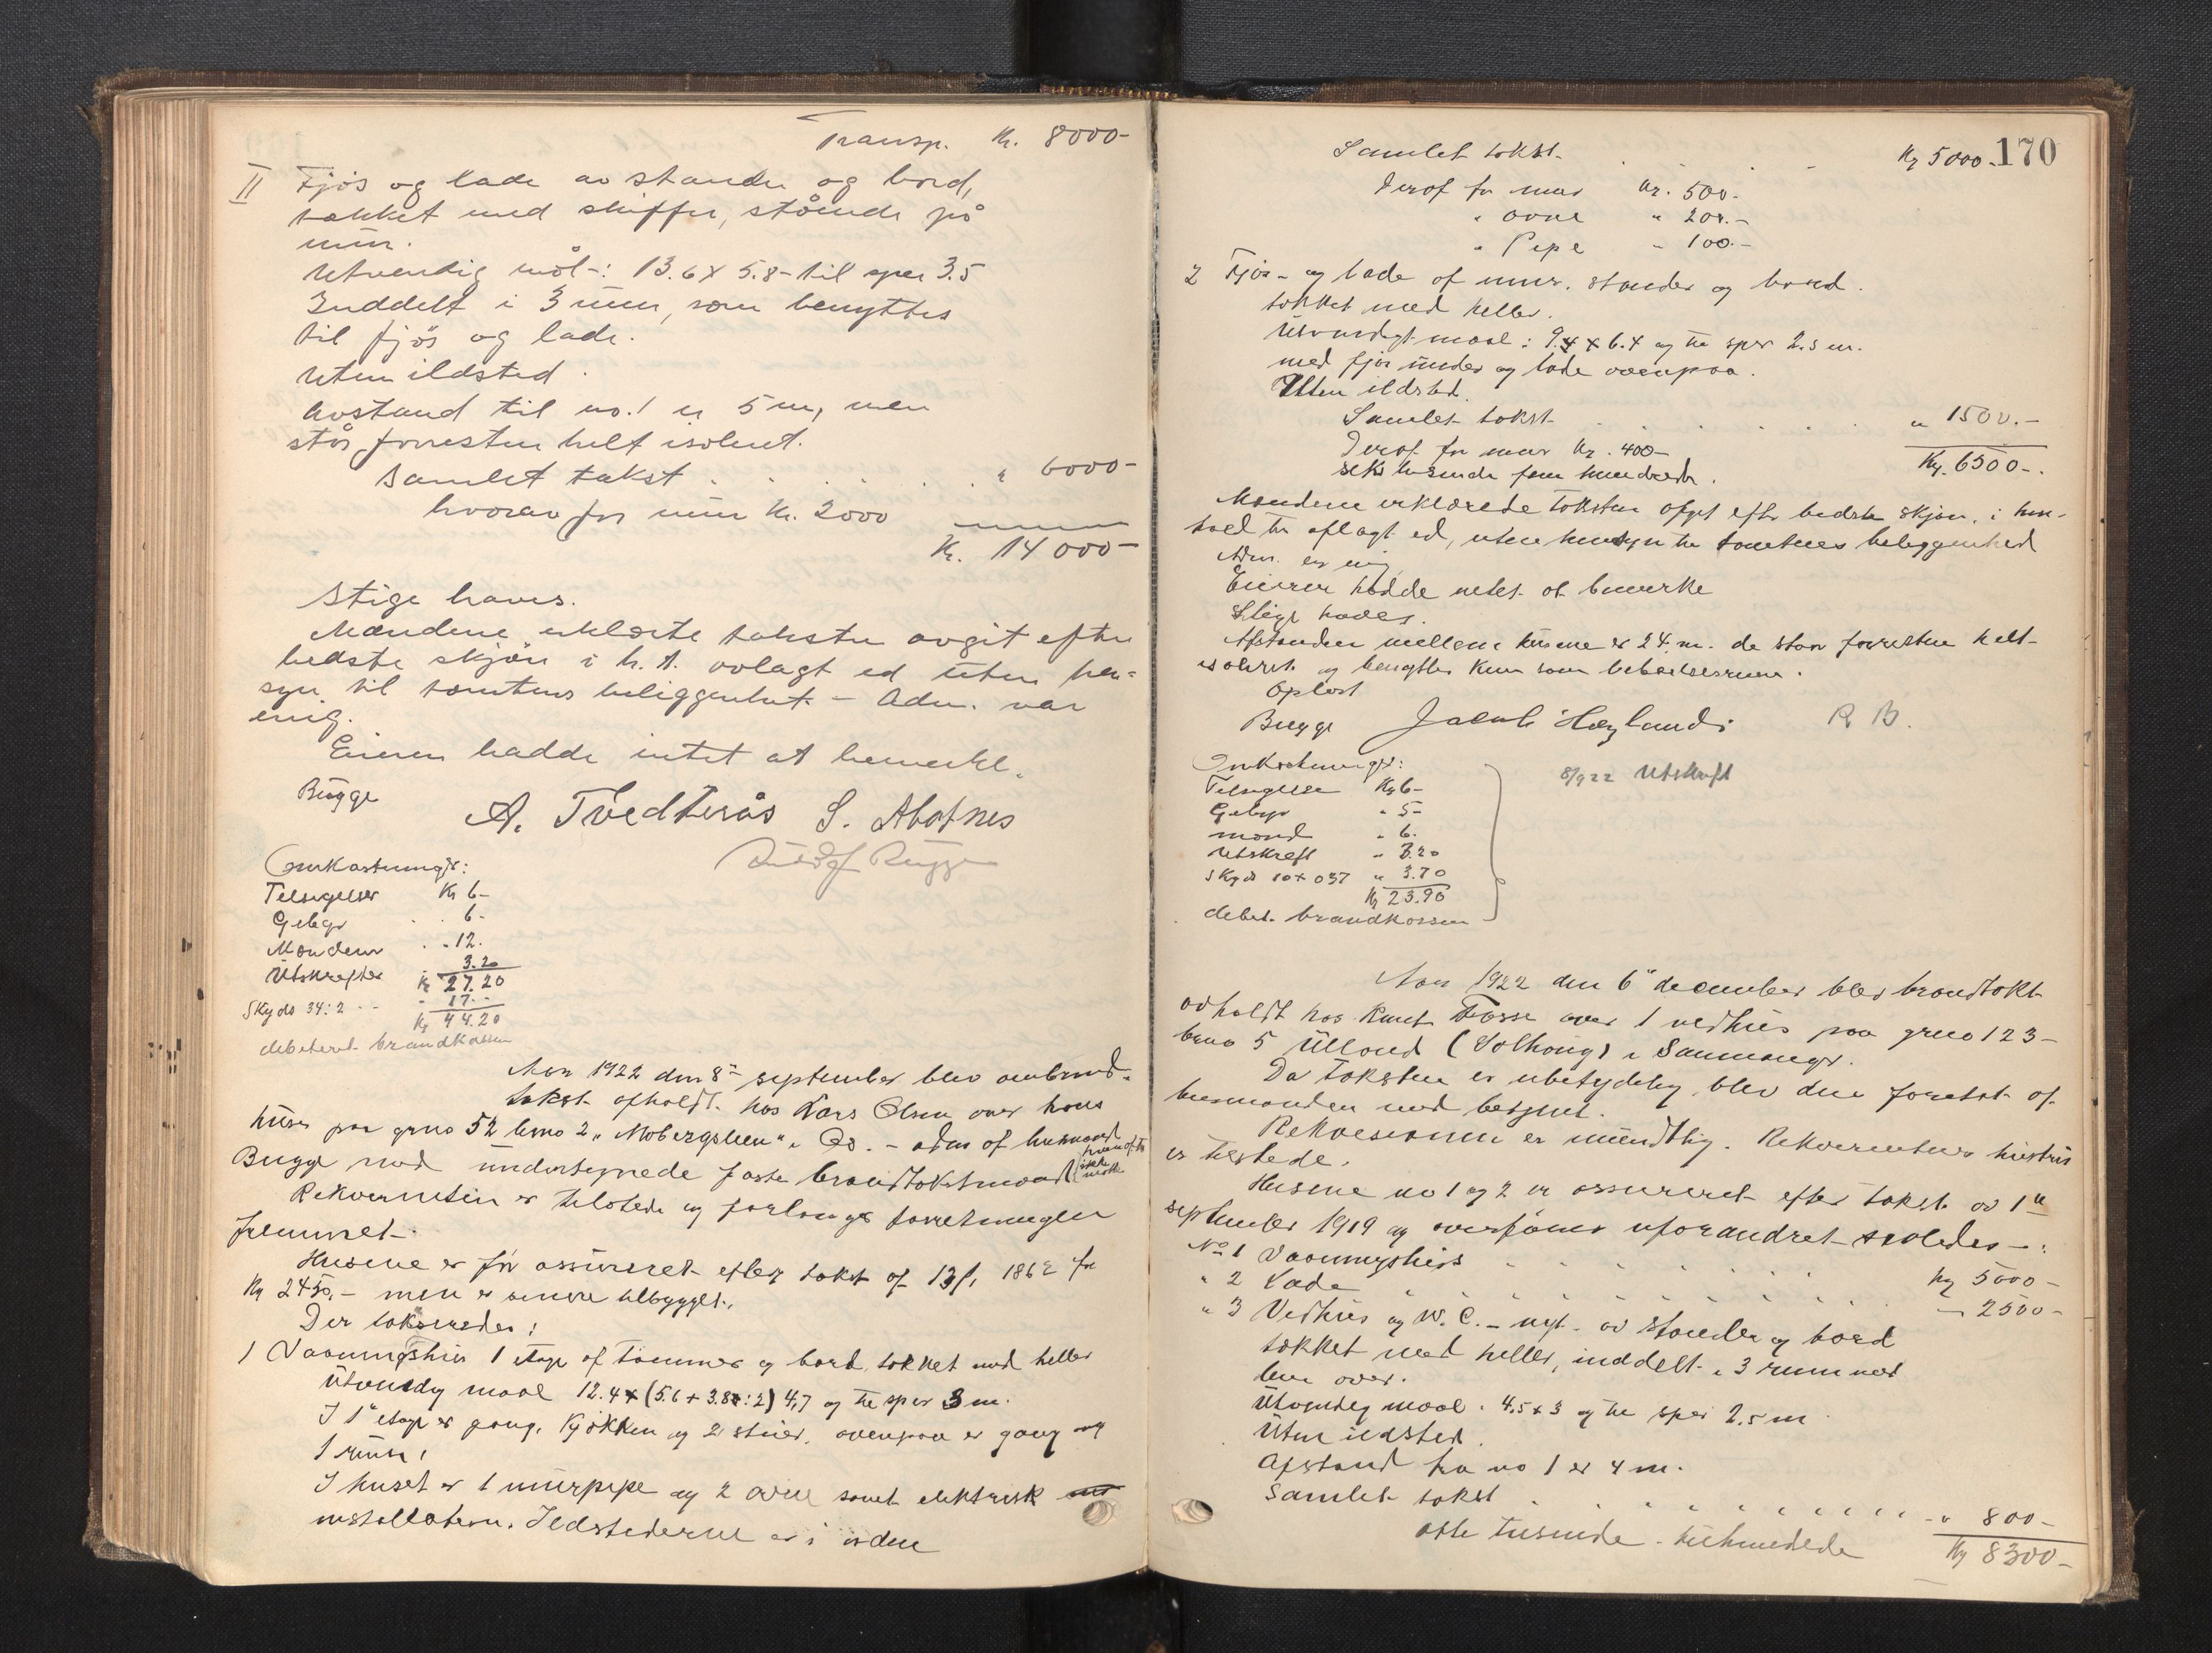 Transp. Kr. 8000-
II Fjös og lade av stander og bord,
takket med skiffer, stående på
mur.
Utvendig mål-: 13.6 x 5.8- til sper 3.5
Inddelt i 3 rum, som benyttes
til fjös og lade.
Uten ildsted.
Avstand til no. 1 er 5 m, men
står forresten helt isoleret.
Samlet takst . . . . . " 6000-
hvorav for mur Kr. 2000
Kr. 14000-
Stige haves.
Mændene erklærte taksten avgit efter
bedste skjön i h. t. avlagt ed uten hen-
syn til tomtens beliggenhet. - Adm. var
enig.
Eieren hadde intet at bemerke.
Bugge
A. Tvedterås S. Abotnes
Rudolf Bugge
Omkostninger:
Tilsigelser Kr 6-
Gebyr . . 6-
Mændene . " 12.
Utskrifter " 3.20
Kr 27.20
Skyds 34:2 - - " 17.-
Kr 44.20
debiteret brandkassen
Aar 1922 den 8de september blev ombrand-
takst afholdt hos Lars Olsen over hans
huse paa grno 52 brno 2 „Mobergslien" i Os. - adm af lensmand
Bugge med undertegnede faste brandtakstmænd
ikke
mötte
Rekvirenten er tilstede og forlanger forretningen
fremmet.
Husene er för assureret efter takst af 13/1 1862 for
Kr 2450.- men er senere tilbygget.
Der takseredes:
1 Vaaningshus 1 etage af tömmer og bord, takket med heller
Utvendig maal 12.4 x (5.6 + 3.8 : 2) 4,7 og til sper 3 m.
I 1ste etage er gang, kjökken og 2 stuer, ovenpaa er gang og
1 rum.
I huset er 1 murpipe og 2 ovne samt elektrisk
installation. Ildstederne er i orden
170
Samlet takst . . . . Kr 5000.-
Deraf for mur Kr. 500.-
" ovne " 200.-
" Pipe " 100.-
2 Fjös- og lade af mur, stander og bord
takket med heller.
Utvendigt maal: 9.4 x 6.4 og til sper 2.5 m.
med fjös under og lade ovenpaa.
Uten ildsted.
Samlet takst . . . . . " 1500.-
Deraf for mur Kr. 400-
Kr. 6500-.
seks tusinde fem hundrede.
Mændene erklærede taksten afgit efter bedste skjön, i hen-
hold til aflagt ed, uten hensyn til tomternes beliggenhed
Adm. er enig
Eieren hadde intet at bemerke
Stige haves.
Afstanden mellem husene er 24 m. de staar forresten helt
isoleret og benyttes kun som beboelsesrum.
Oplæst
Bugge Jacob Høylandi R B.
8/9 22 Utskrift
Omkostninger:
Tilsigelse Kr 6-
Gebyr " 5-
mænd " 6.
Utskrift " 3.20
Skyds 10 x 037 " 3.70
Kr 23.90
debet. brandkassen
Aar 1922 den 6te december blev brandtakst
avholdt hos Knut Fosse over 1 vedhus paa grno 123-
brno 5 Ulland (Solhaug) i Samnanger.
Da taksten er ubetydelig blev den foretat af
lensmanden med betjent.
Rekvisisionen er mündtlig. Rekvirentens hustru
er tilstede.
Husene no 1 og 2 er assureret efter takst av 1ste
september 1919 og overföres uforandret saaledes -:
No 1 Vaaningshus . . . . . . Kr 5000-
" 2 Lade . . . . . . " 2500-
" 3 Vedhus og W.C. - nyt - av stander og bord
takket med heller, inddelt i 3 rum med
lem over.
Utvendig maal: 4.5 x 3 og til sper 2.5 m
Uten ildsted.
Afstand fra no 1 er 4 m.
Samlet takst . . . . . . " 800-
otte tusinde trehundrede Kr 8300-